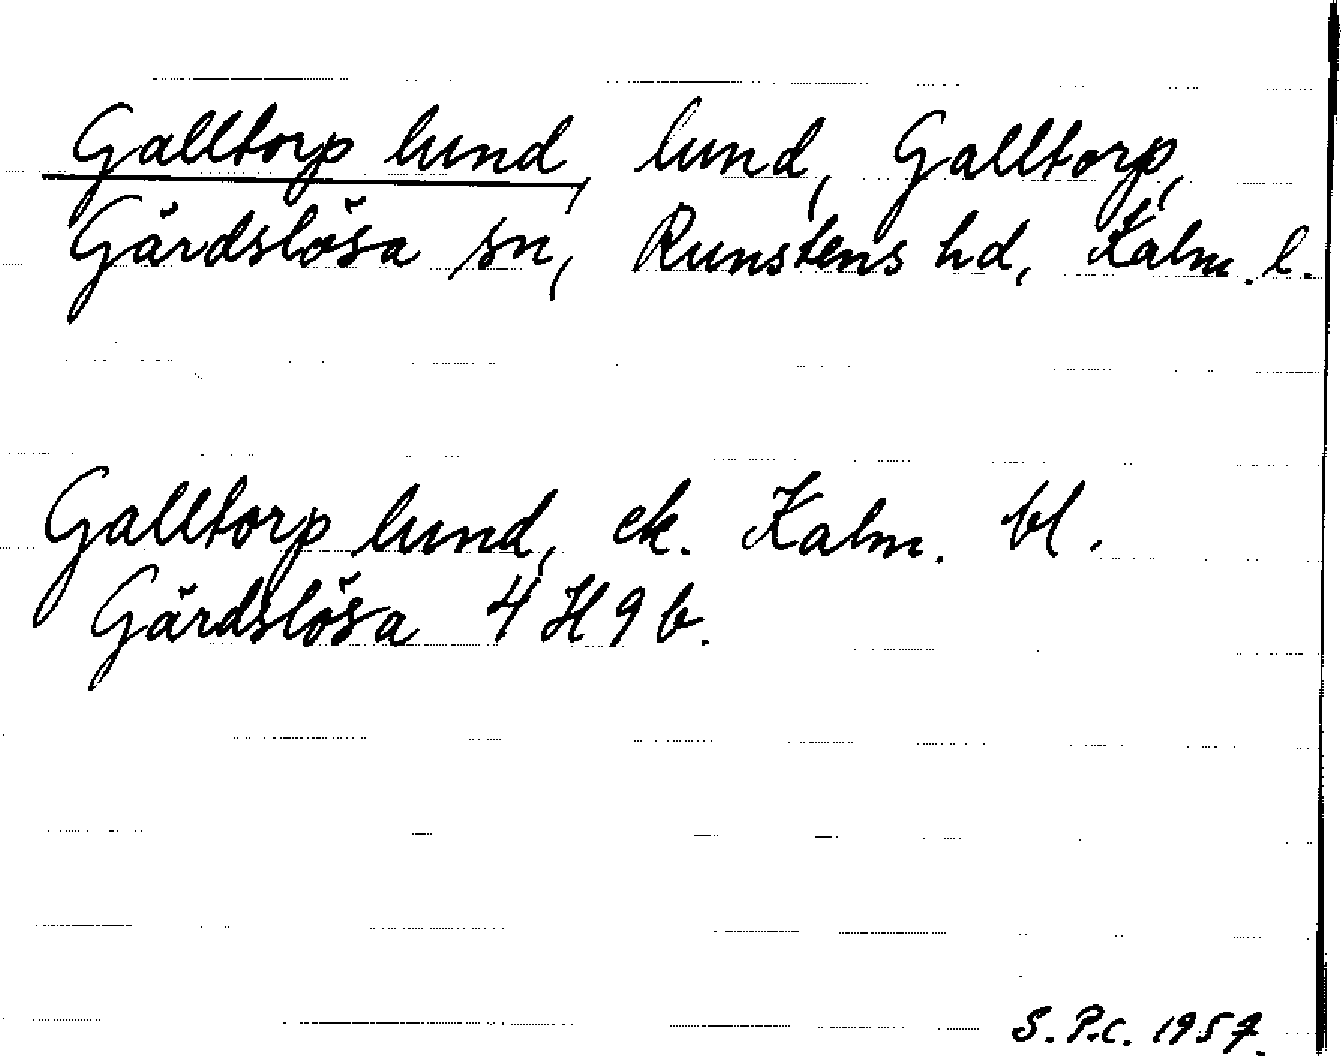 Galltorp lund, lund, Galltorp,
Gärdslösa sn, Runstens hd, Kalm. l.
Galltorp lund, ek. Kalm. bl.
Gärdslösa 4 H 9 b.
S. P.C. 1957.